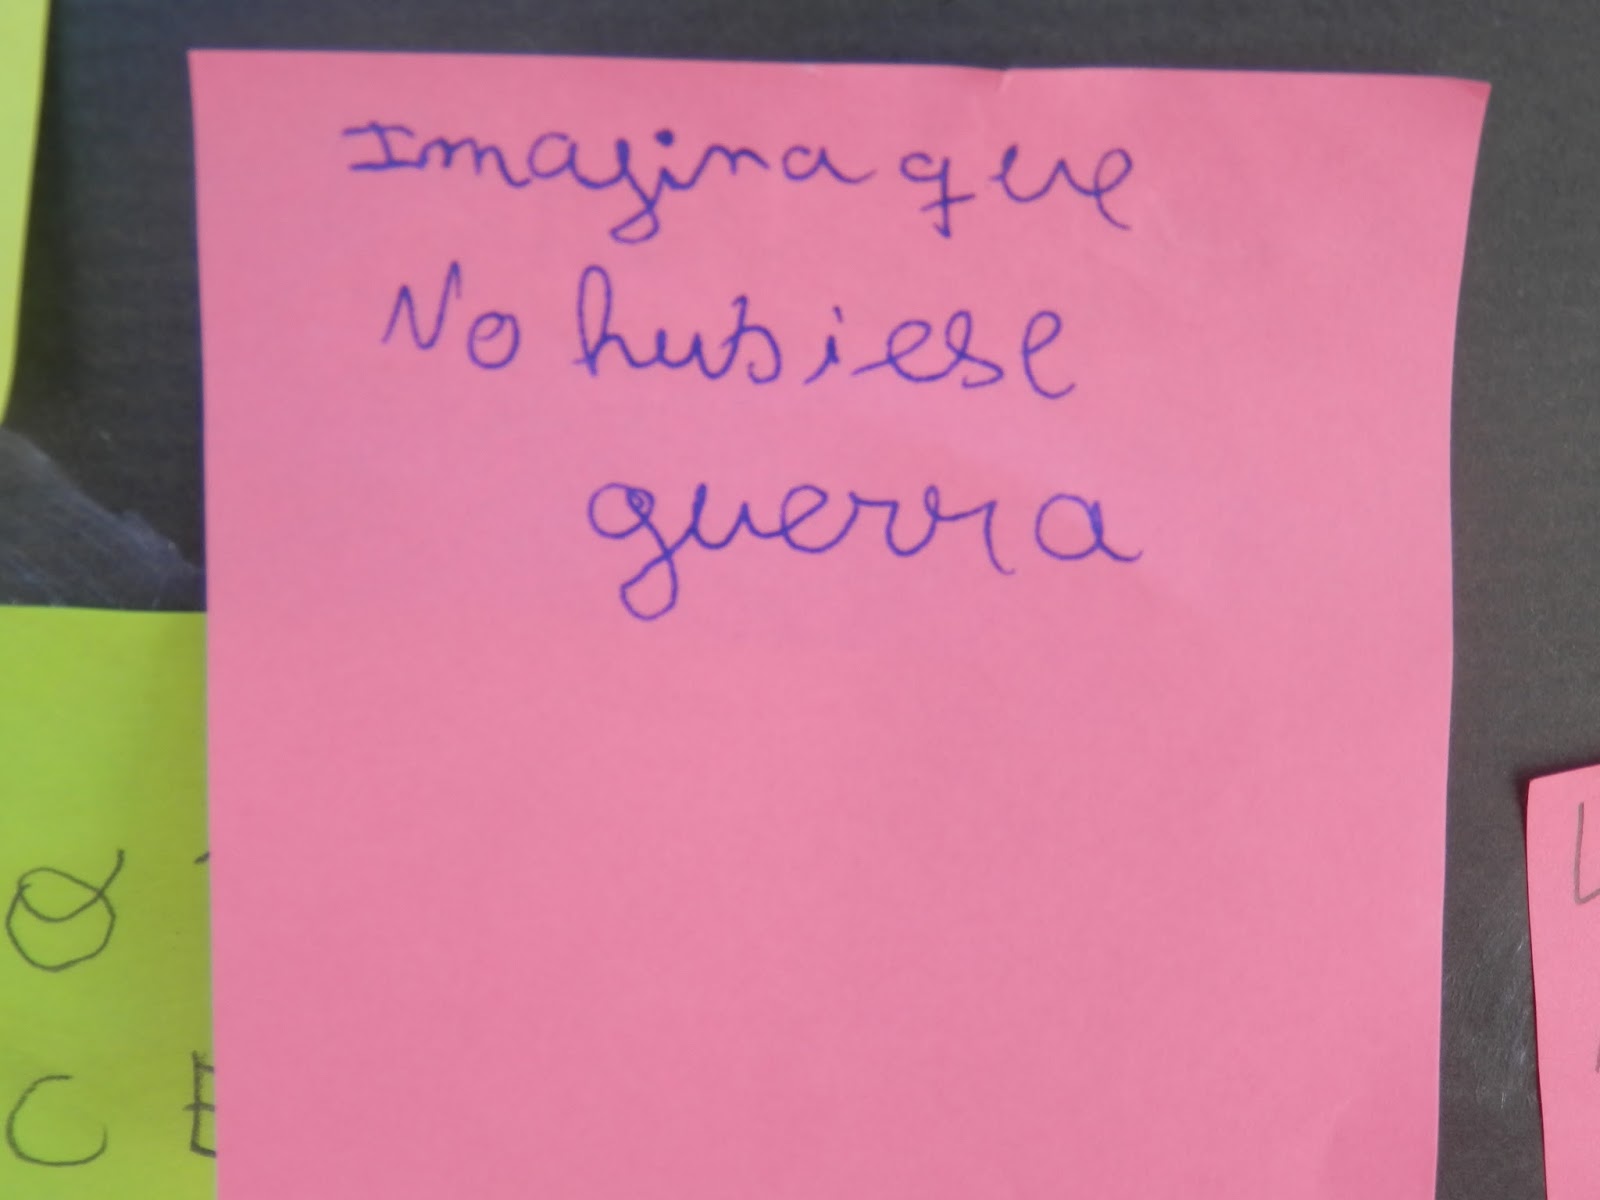 Imagina que
No hubiese
guerra